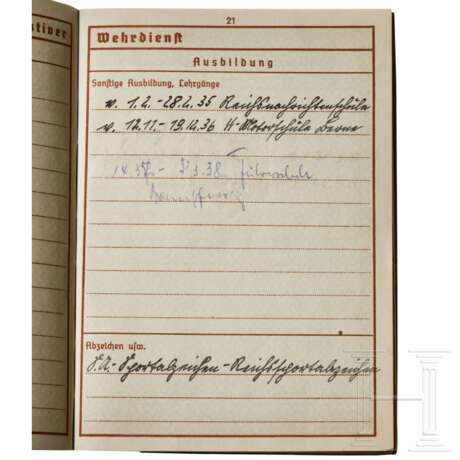 ativer
21
Wehrdienst
Ausbildung
Sonstige Ausbildung, Lehrgänge
v. 1.2.-28.2.35 Reichsnachrichtenschule
v. 12.11.-19.12.36 H-Motorschule Berne
38.
Abzeichen usw.
S.A.-Sportabzeichen-Reichssportabzeichen